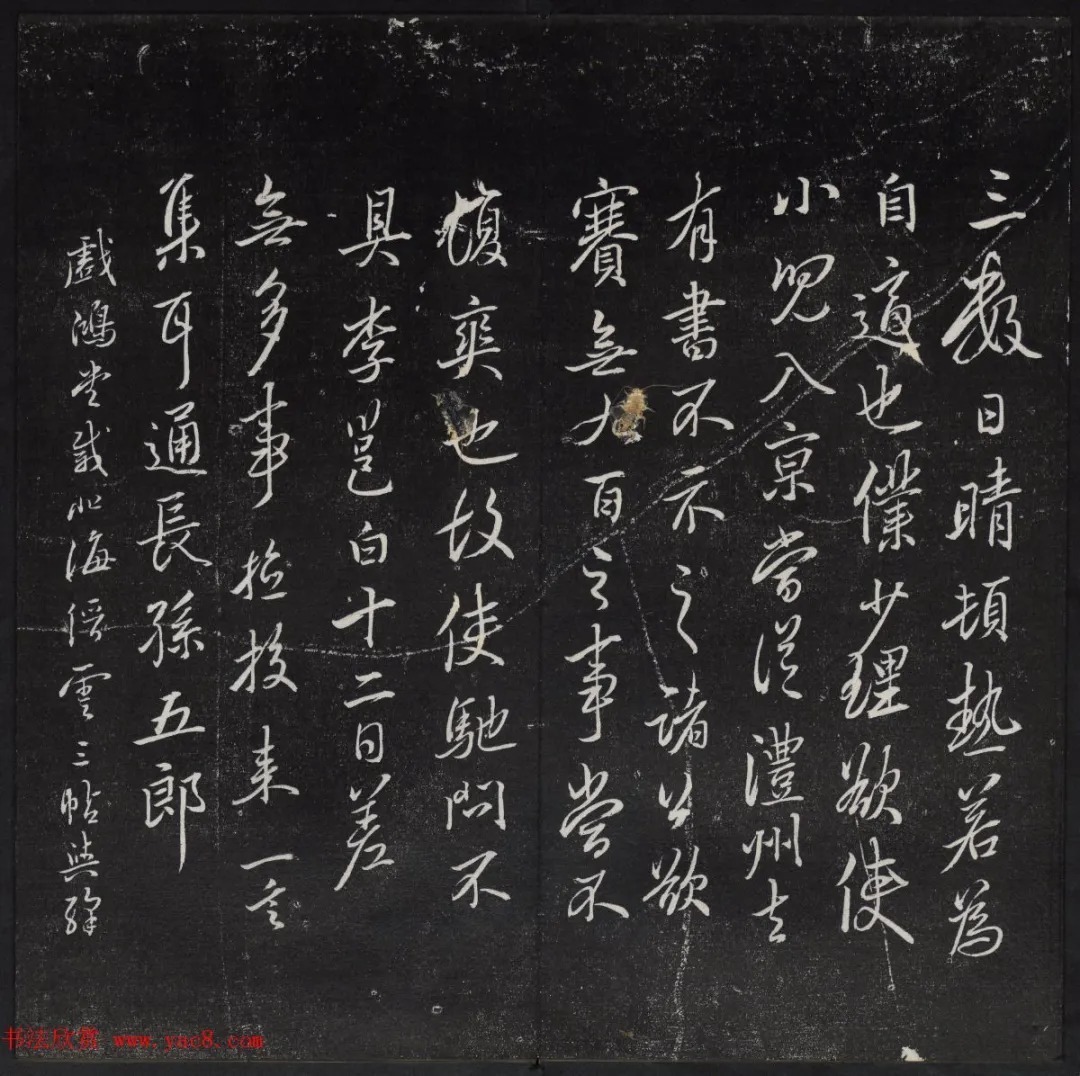 三數日晴頓熱若為
自適也僕少理欲使
小兒入京嘗從澧州去
有書不示之諸公欲
賽無九百之事嘗不
復奕也故使馳問不
具李邕白十二日差
無多事撿校來一言
集耳通長孫五郎
戲鴻堂載北海縉雲三帖與
书法欣赏 www.yac8.com